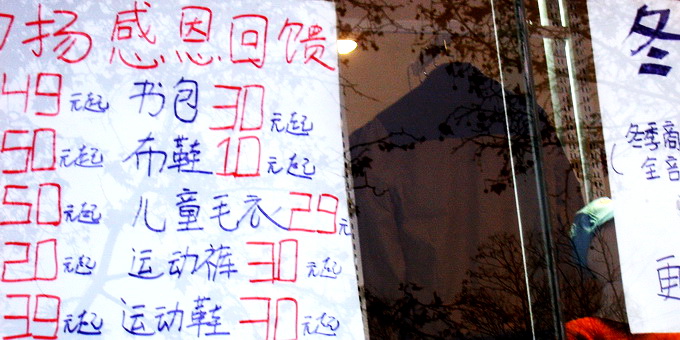 扬感恩回馈
49元起 书包30元起
50元起 布鞋10元起
50元起 儿童毛衣29元
20元起 运动裤30元起
39元起 运动鞋30元起
冬
冬季商
全部
更